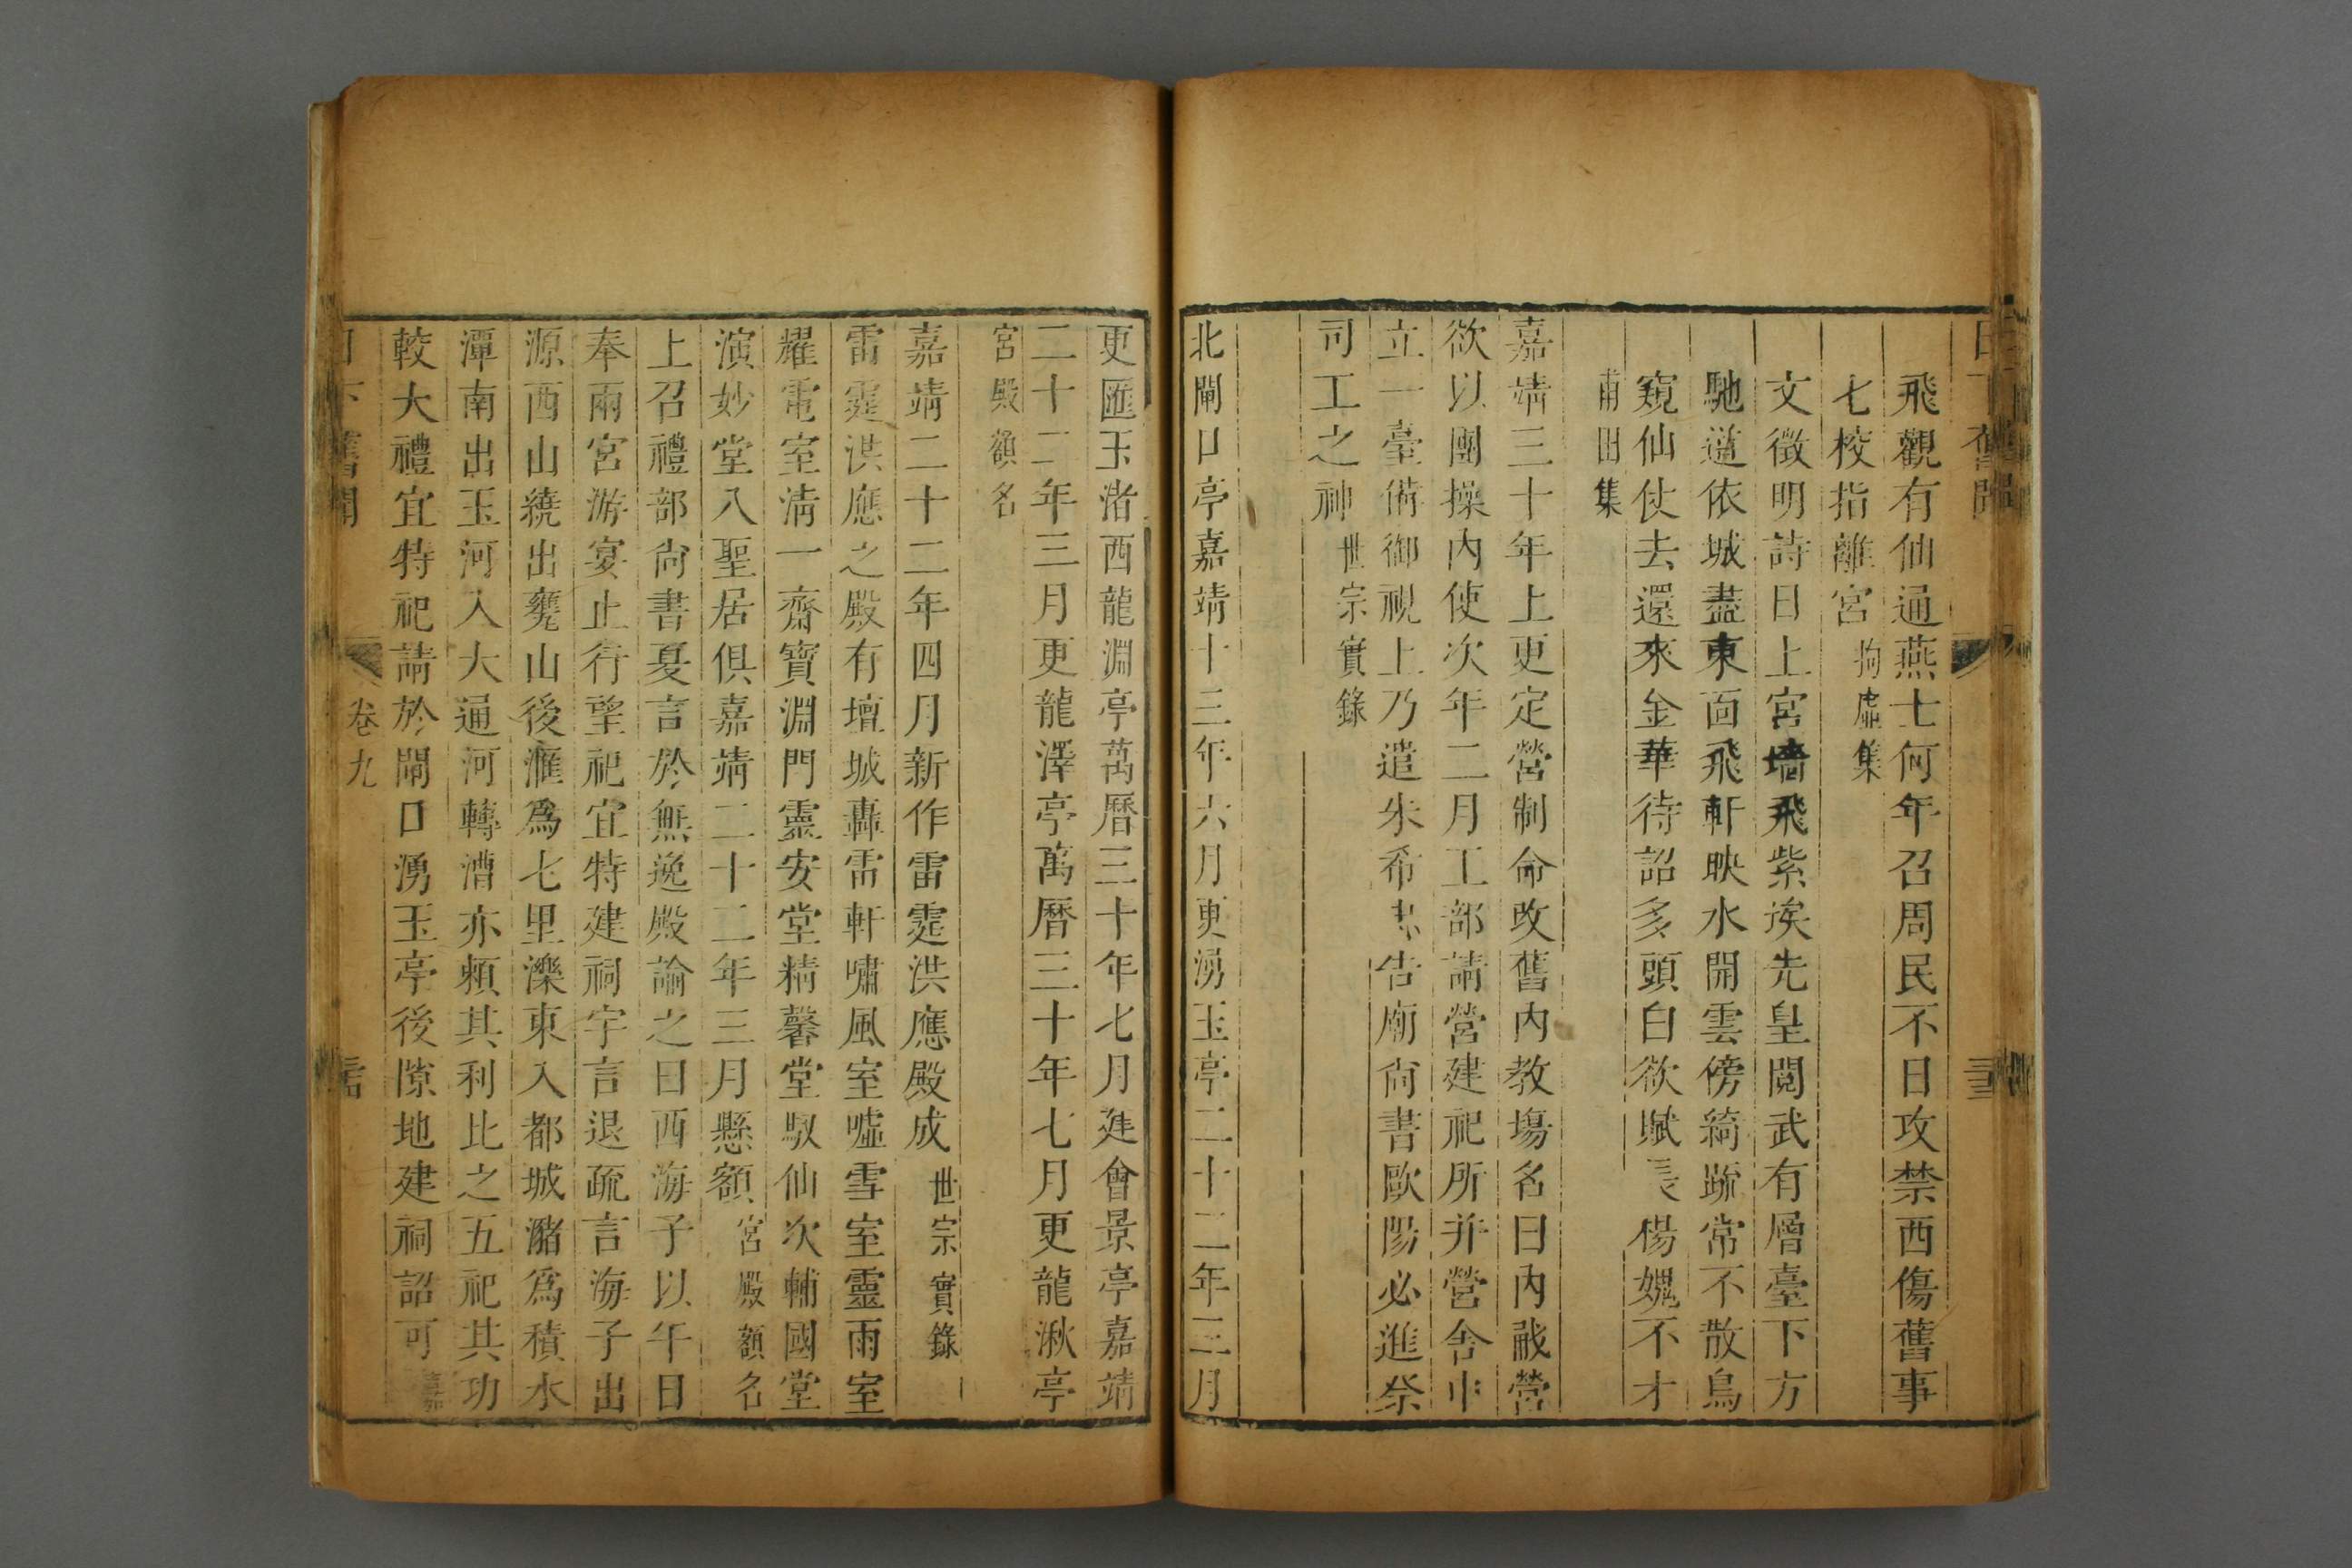 日下舊聞
飛觀有仙通燕士何年召周民不日攻禁西傷舊事
七校指離宮 拘虛集
文徵明詩日上宮墻飛紫埃先皇閱武有層臺下方
馳道依城盡東面飛軒映水開雲傍綺疏常不散鳥
窺仙仗去還來金華待詔多頭白欲賦長楊媿不才
甫田集
嘉靖三十年上更定營制命改舊内教塲名曰内敵營
欲以團操内使次年二月工部請營建祀所并營舍中
立一臺備御視上乃遣朱希忠告廟尚書歐陽必進祭
司工之神 世宗實錄
北閘口亭嘉靖十三年六月更湧玉亭二十二年三月
更匯玉渚西龍淵亭萬曆三十年七月建會景亭嘉靖
二十二年三月更龍澤亭萬曆三十年七月更龍湫亭
宮殿額名
嘉靖二十二年四月新作雷霆洪應殿成 世宗實錄
雷霆洪應之殿有壇城轟雷軒嘯風室噓雪室靈雨室
耀電室淸一齋寶淵門靈安堂精馨堂馭仙次輔國堂
演妙堂八聖居俱嘉靖二十二年三月懸額 宮殿額名
上召禮部尚書夏言於無逸殿諭之曰西海子以午日
奉兩宮游宴止行望祀宜特建祠宇言退疏言海子出
源西山繞出甕山後滙爲七里濼東入都城瀦爲積水
潭南出玉河入大通河轉漕亦賴其利比之五祀其功
較大禮宜特祀請於閘口湧玉亭後隙地建祠詔可 嘉
日下舊聞 卷九